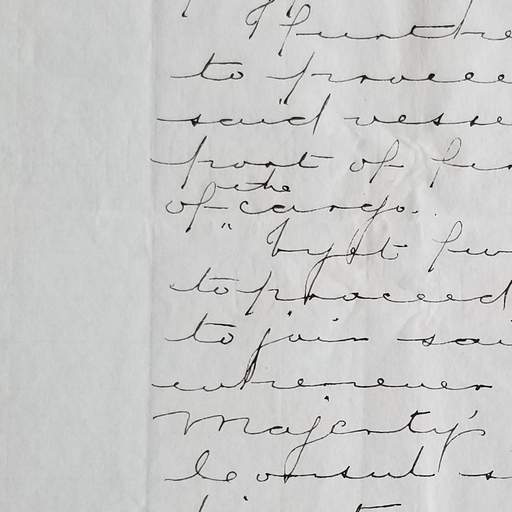 I furthe
to procee
said vesse
port of fir
the
of cargo.
" I  fur
to proceed
to join sai
whenever
Majesty's
Consul s